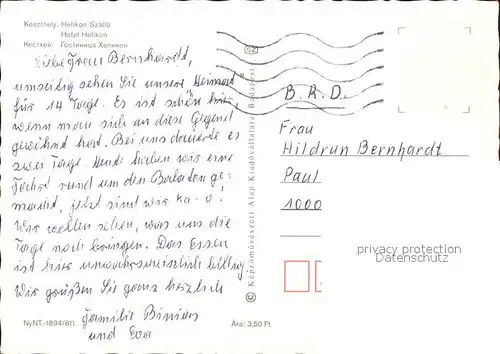 Keszthely, Helikon Szálló
Hotel Helikon
Кестхей Гостиница Хеликон
Liebe Frau Bernhardt,
umseitig sehen Sie unsere "Heimat"
für 14 Tage. Es ist schön hier,
wenn man sich an diese Gegend
gewöhnt hat. Bei uns dauerte es
zwei Tage. Heute haben wir eine
Fahrt rund um den Balaton ge-
macht, jetzt sind wir k.o.!
Wir wollen sehen, was uns die
Tage noch bringen. Das Essen
ist hier unwahrscheinlich billig.
Wir grüßen Sie ganz herzlich
Familie Binias
und Eva
NyNT.-1894/811.
Ára: 3,50 Ft
© Képzőművészeti Alap Kiadóvállalata, Budapest
SZ
B.R.D.
Frau
Hildrun Bernhardt
Paul
1000
privacy protection
Datenschutz